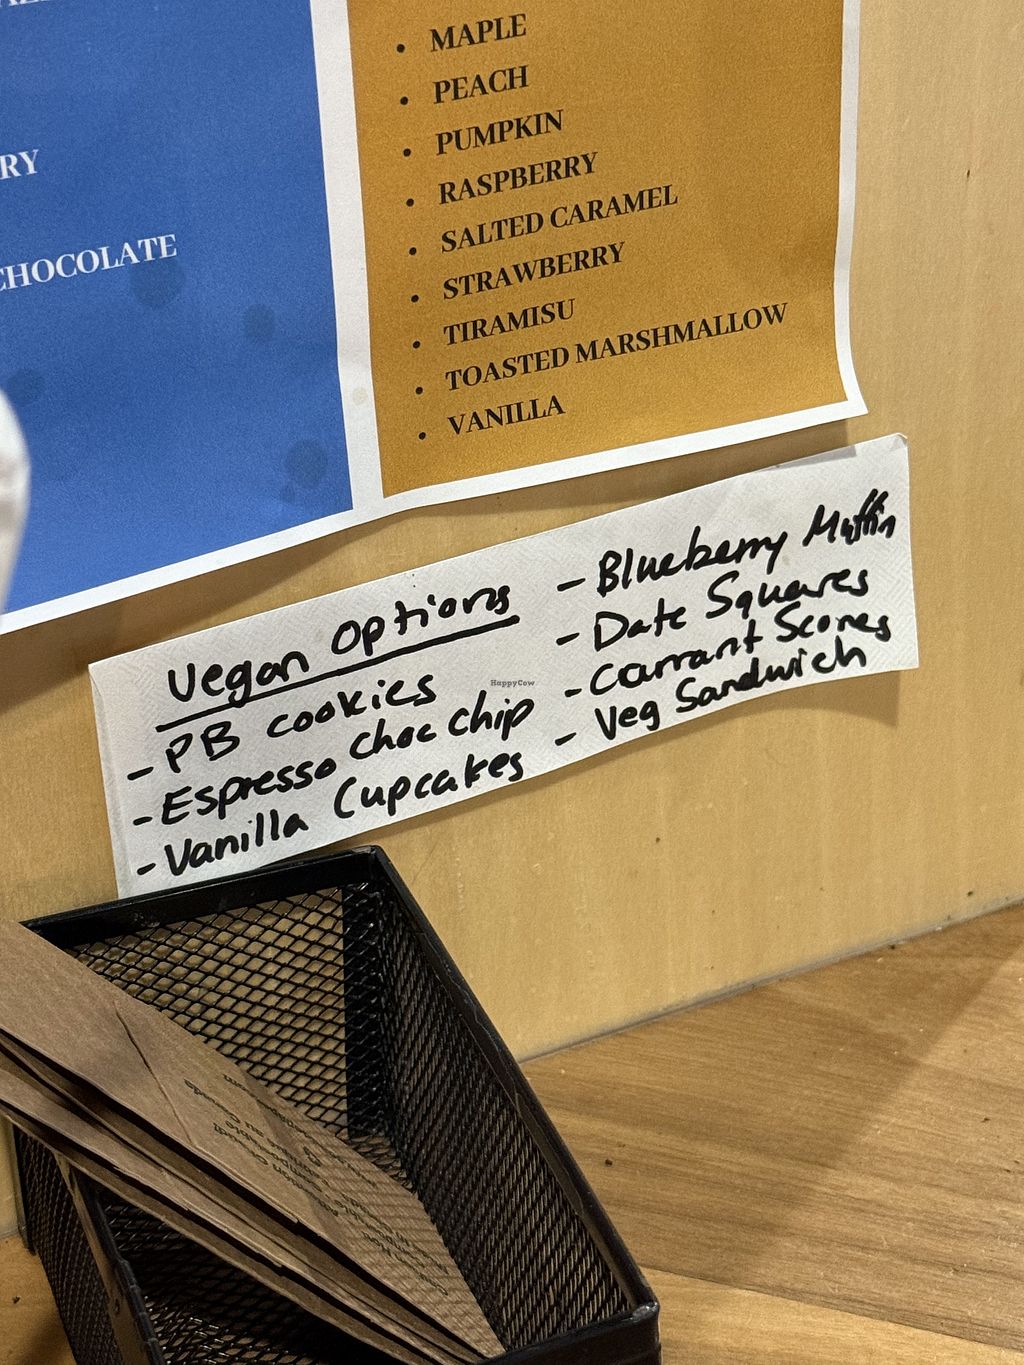 RY
CHOCOLATE
• MAPLE
• PEACH
• PUMPKIN
• RASPBERRY
• SALTED CARAMEL
• STRAWBERRY
• TIRAMISU
• TOASTED MARSHMALLOW
• VANILLA
Vegan Options
- PB cookies
- Espresso choc chip
- Vanilla Cupcakes
- Blueberry Muffin
- Date Squares
- Currant Scones
- Veg Sandwich
HappyCow